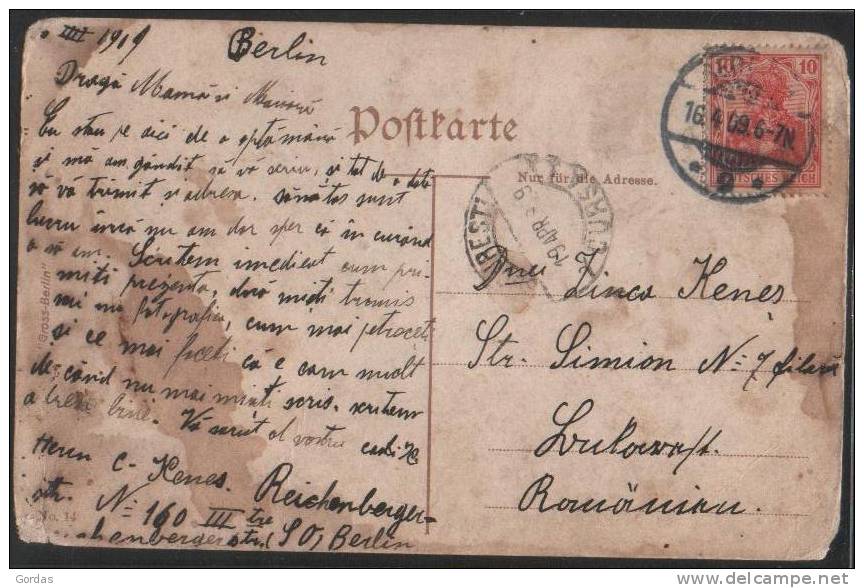 III 1909
Berlin
Dragă Mamă și
Eu stau pe aici de o săptămână
și mă am gândit să vă scriu, și tot de o dată
să vă trimit și adresa. sănătos sunt
lucru încă nu am dar sper că în curând
o să am. Scrieți-mi imediat cum
prezenta, dacă
mi-
fotografia, cum mai petreceți
și ce mai faceți că e cam mult
de când nu mai mi-ați scris.
bine. Vă sărut al vostru
Herrn C. Kenes. Reichenberger-
str. N= 160 III tre
str. (SO) Berlin
Postkarte
Nur für die Adresse.
16.4.09.6-7N.
10
DEUTSCHES REICH
BUCURESTI
19 APR
Dnei Zinca Kenes
Str. Simion N= 7 filară
Bukarest.
Romänien.
"Gross-Berlin"
No. 14
Gordas
delcampe.net